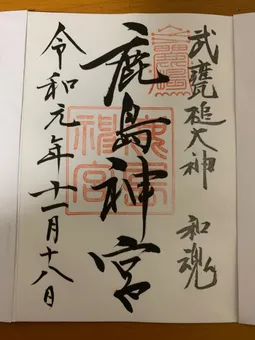 武甕槌大神 和魂
鹿島神宮
令和元年十一月十八日
鹿島神宮